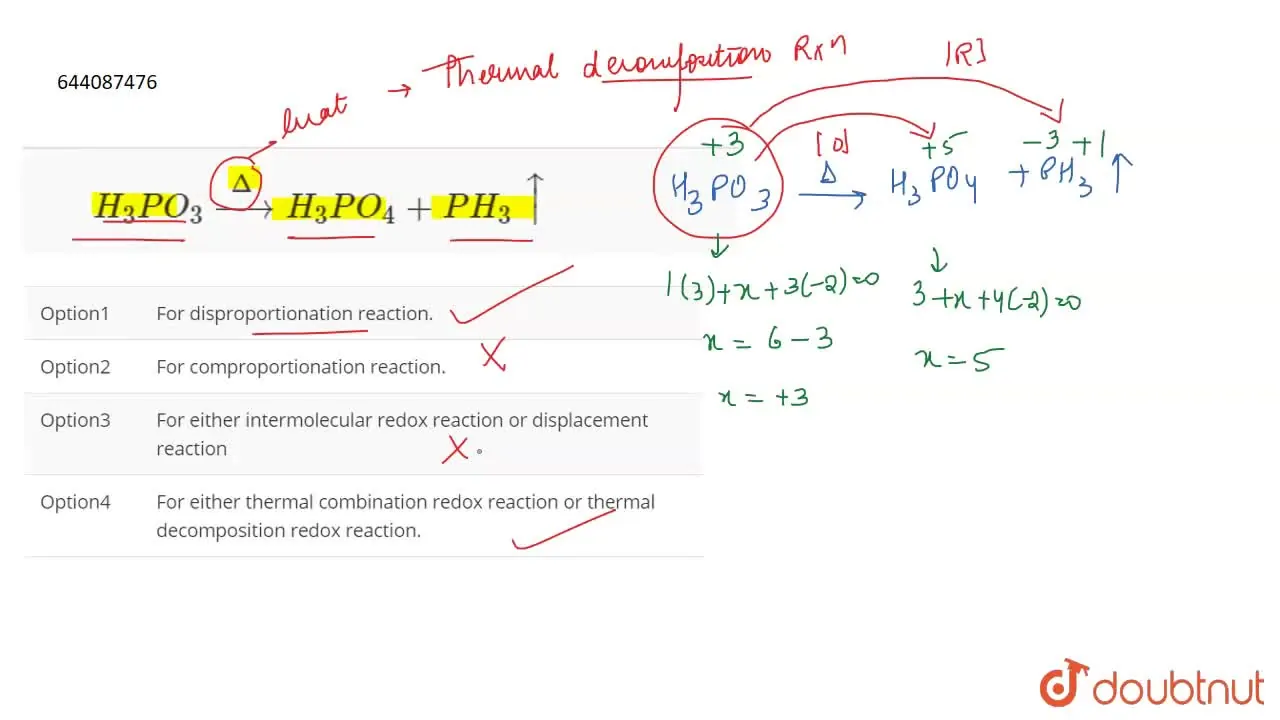 644087476
heat → Thermal decomposition Rxn
[R]
H₃PO₃ —Δ→ H₃PO₄ + PH₃ ↑
+3 [O] +5 -3 +1
H₃PO₃ —Δ→ H₃PO₄ + PH₃ ↑
1(3)+x+3(-2)=0
x = 6-3
x = +3
3+x+4(-2)=0
x=5
Option1 For disproportionation reaction. ✓
Option2 For comproportionation reaction. X
Option3 For either intermolecular redox reaction or displacement
reaction X
Option4 For either thermal combination redox reaction or thermal
decomposition redox reaction. ✓
doubtnut